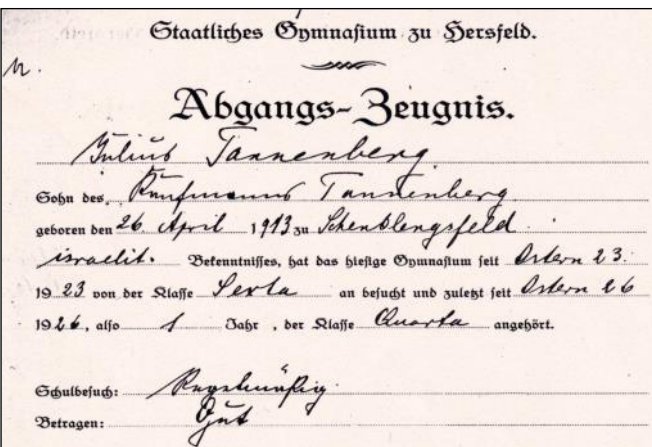 Staatliches Gymnasium zu Hersfeld.
Abgangs-Zeugnis.
Julius Tannenberg
Sohn des Kaufmanns Tannenberg
geboren den 26. April 1913 zu Schenklengsfeld
israelit. Bekenntnisses, hat das hiesige Gymnasium seit Ostern 23.
1923 von der Klasse Sexta an besucht und zuletzt seit Ostern 26
1926, also 1 Jahr, der Klasse Quarta angehört.
Schulbesuch: Regelmäßig
Betragen: Gut